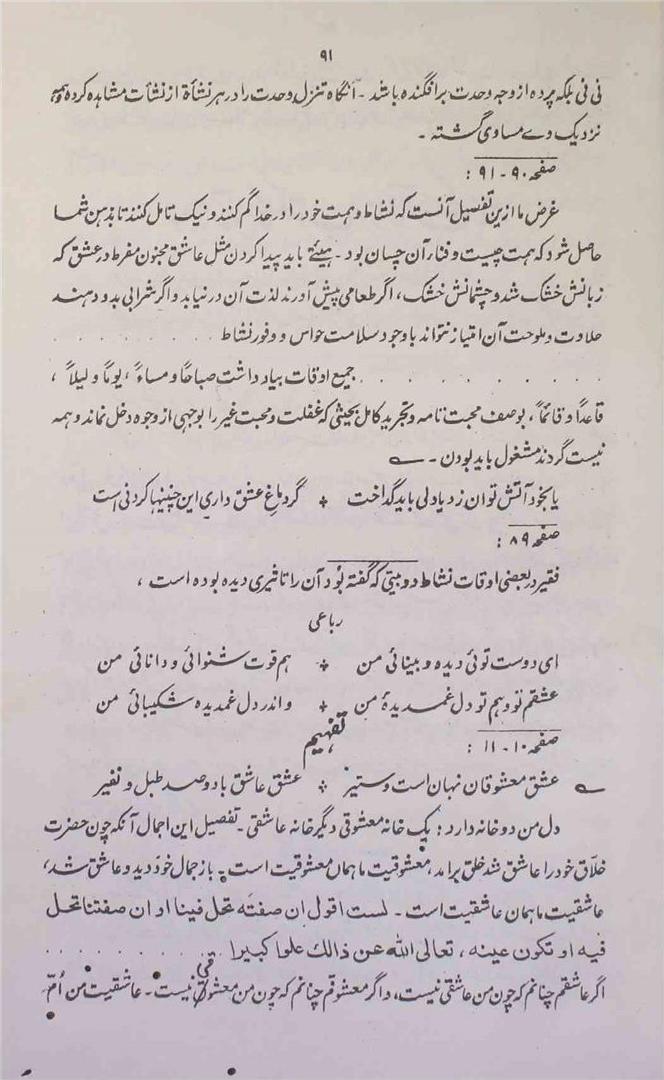 ۹۱
نی نی بلکه پرده از وجه وحدت برافگنده باشد ۔ آنگاه تنزل وحدت را در هر نشأة از نشأت مشاهده کرده و همه
نزدیک وے مساوی گشته ۔
صفحه ۹۰-۹۱ :
غرض ما ازین تفصیل آنست که نشاط و همت خود را در خدا گم کنند و نیک تامل کنند تا بذهن شما
حاصل شود که همت چیست و فنار آن چسان بود ۔ هیئتے باید پیدا کردن مثل عاشق مجنون مفرط در عشق که
زبانش خشک شد و چشمانش خشک ، اگر طعامی پیش آورند لذت آن در نیابد و اگر شرابی بدو دهند
حلاوت و ملوحت آن امتیاز نتواند باوجود سلامت حواس و وفور نشاط . . . . . . . . . .
. . . . . . . . . . جمیع اوقات بیاد داشت صباحاً و مساءً ، یوماً و لیلاً ،
قاعداً و قائماً ، بوصف محبت نامه و تجرید کامل بحیثی که غفلت و محبت غیر را بوجهی از وجوه دخل نماند و همه
نیست گردند مشغول باید بودن ۔ ے
یا بخود آتش توان زد یا دلی باید گداخت ٭ گر دماغ عشق داری این چنینها کردنی است
صفحه ۸۹ :
فقیر در بعضی اوقات نشاط دو بیتی که گفته بُود آن را تاثیری دیده بوده است ،
رباعی
ای دوست توئی دیده و بینائی من ٭ هم قوت شنوائی و دانائی من
عشقم تو و هم تو دل غمدیدهٔ من ٭ و اندر دل غمدیده شکیبائی من
تفهیم
صفحه ۱۰-۱۱ :
ے عشق معشوقان نهان است و ستیز ٭ عشق عاشق با دو صد طبل و نفیر
دل من دو خانه دارد : یک خانه معشوقی دیگر خانه عاشقی ۔ تفصیل این اجمال آنکه چون حضرت
خلّاق خود را عاشق شد خلق برامد ، معشوقیت ما همان معشوقیت است ۔ باز جمال خود دید و عاشق شد ،
عاشقیت ما همان عاشقیت است ۔ لست اقول ان صفته تحل فینا او ان صفتنا تحل
فیه او تکون عینه ، تعالی الله عن ذالك علوا کبیرا . . . . . . . . . .
اگر عاشقم چنانم که چون من عاشقی نیست ، و اگر معشوقم چنانم که چون من معشوقی نیست ۔ عاشقیت من اُمّ